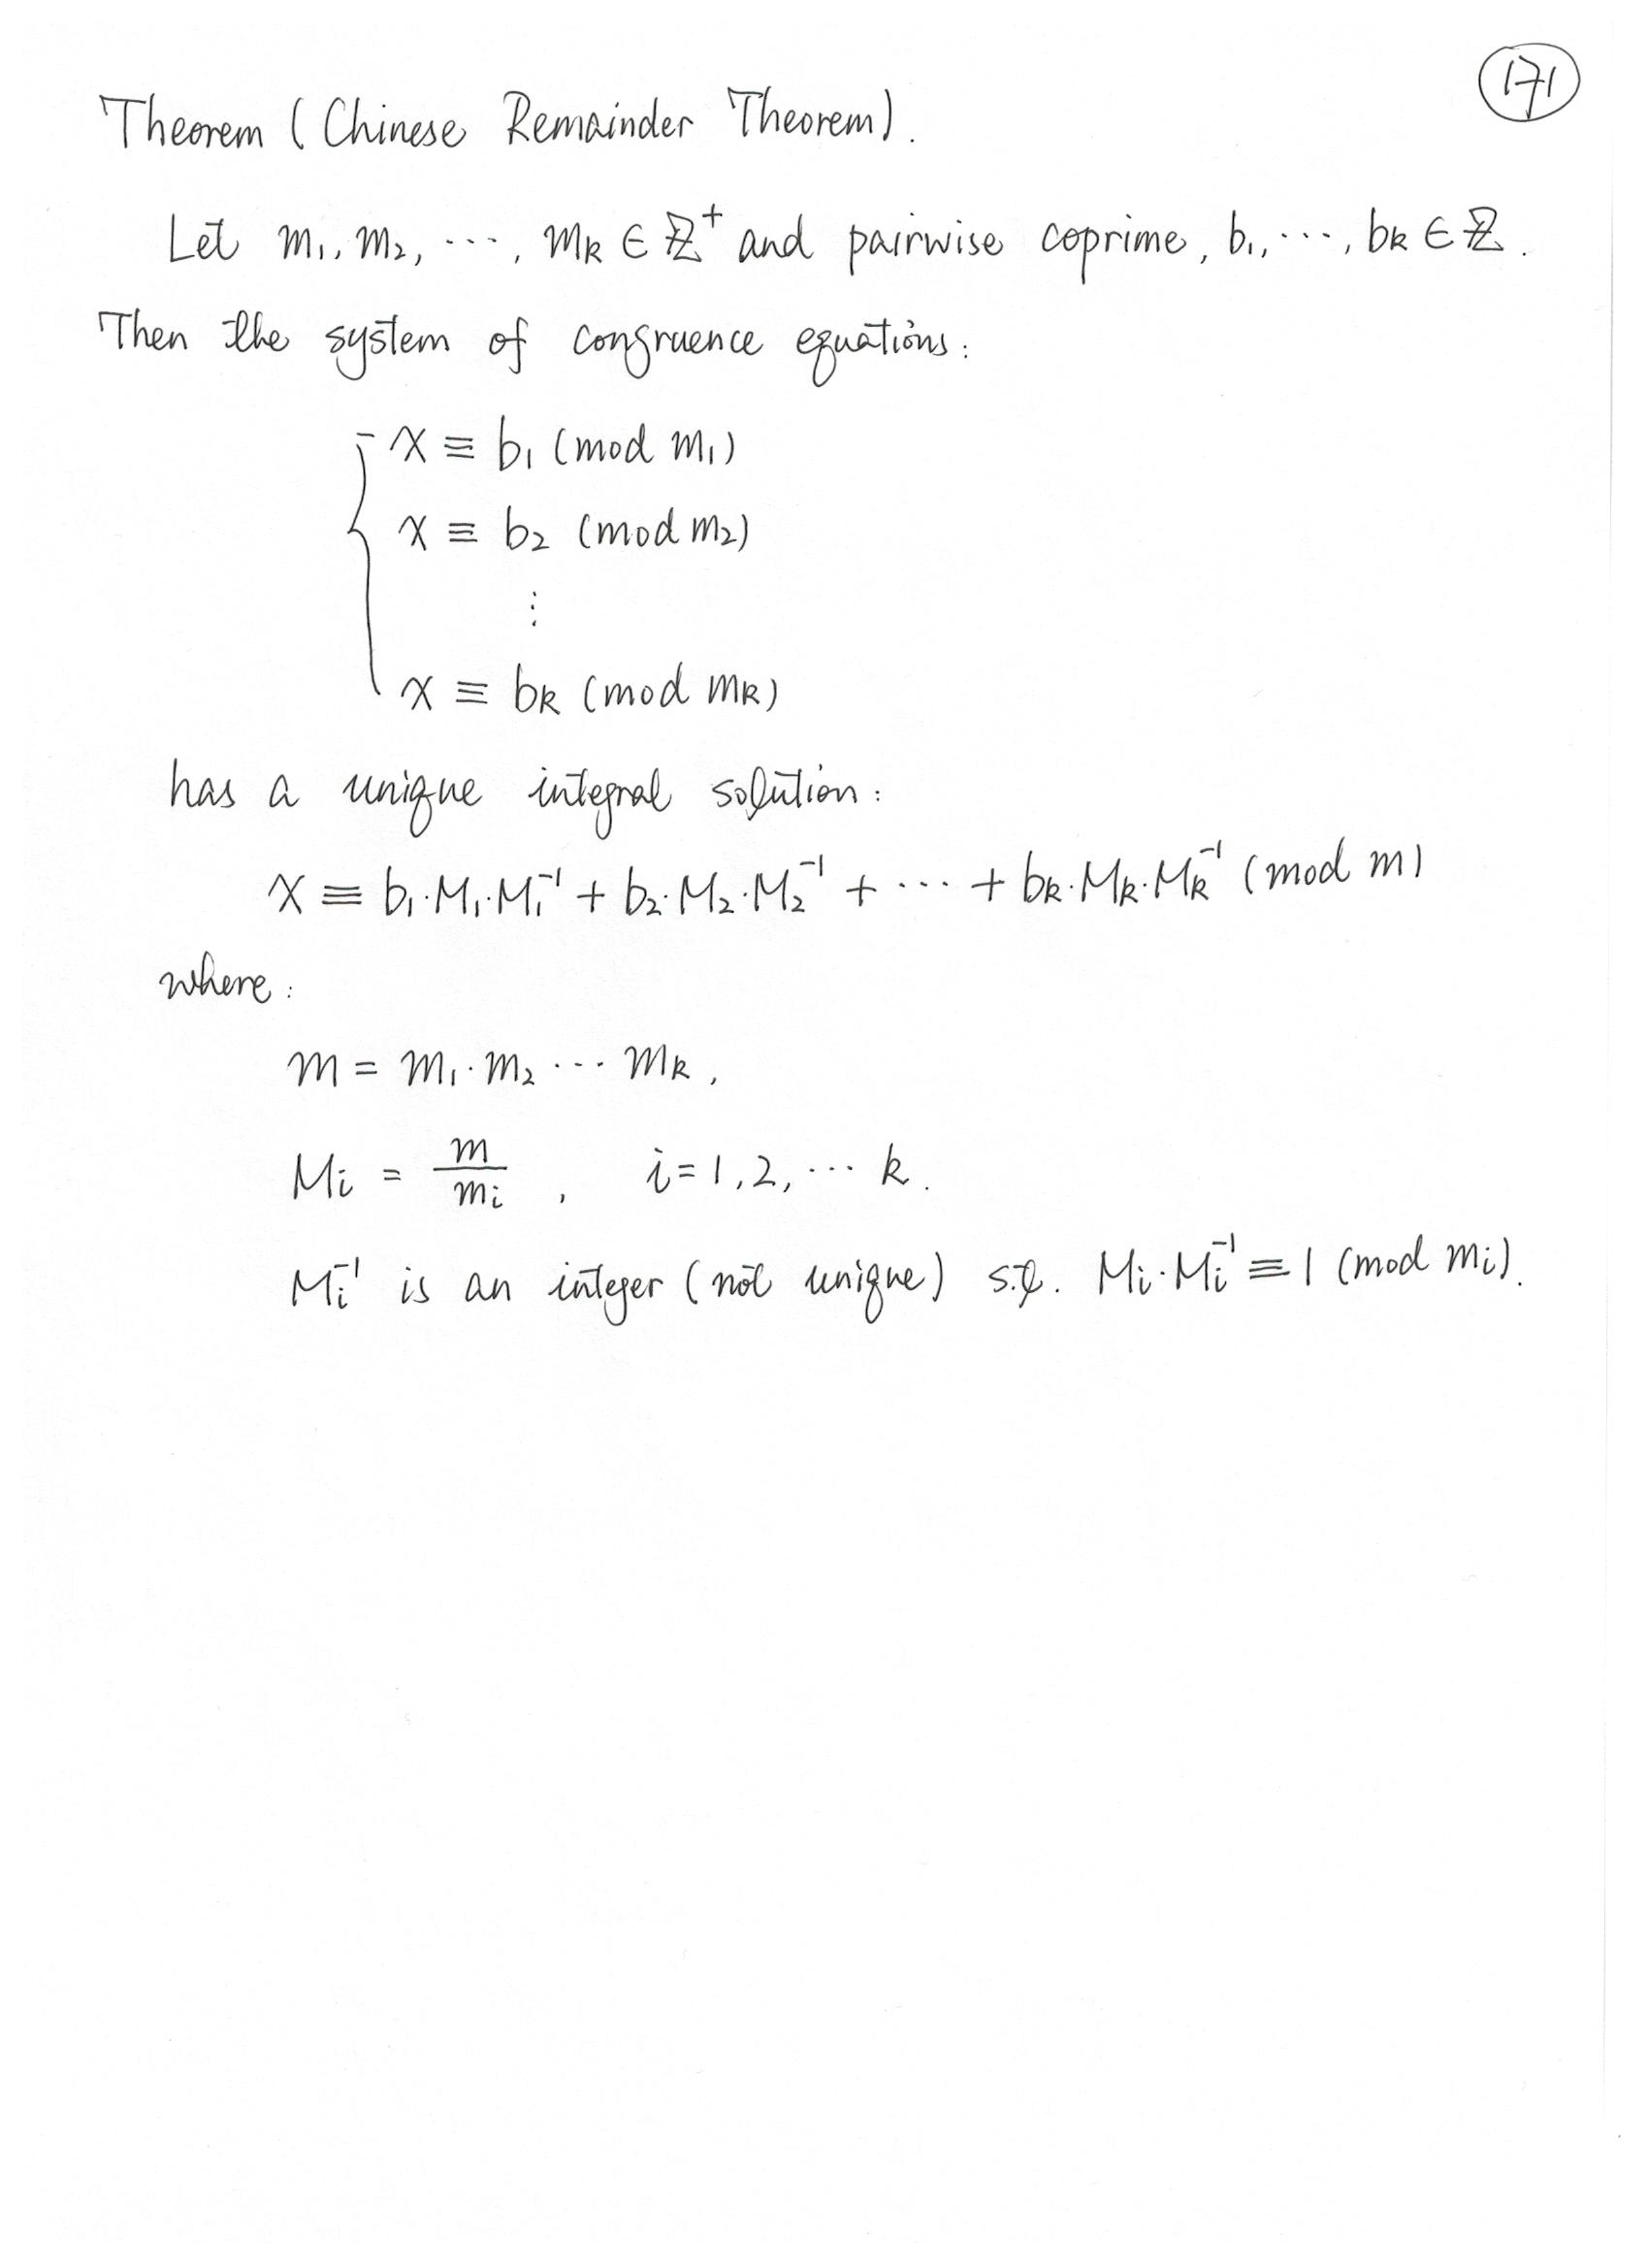 171
Theorem (Chinese Remainder Theorem).
Let m₁, m₂, ⋯, mₖ ∈ ℤ⁺ and pairwise coprime, b₁, ⋯, bₖ ∈ ℤ.
Then the system of congruence equations:
x ≡ b₁ (mod m₁)
x ≡ b₂ (mod m₂)
⋮
x ≡ bₖ (mod mₖ)
has a unique integral solution:
x ≡ b₁·M₁·M₁⁻¹ + b₂·M₂·M₂⁻¹ + ⋯ + bₖ·Mₖ·Mₖ⁻¹ (mod m)
where:
m = m₁·m₂ ⋯ mₖ,
Mᵢ = m/mᵢ, i=1,2,⋯ k.
Mᵢ⁻¹ is an integer (not unique) s.t. Mᵢ·Mᵢ⁻¹ ≡ 1 (mod mᵢ).